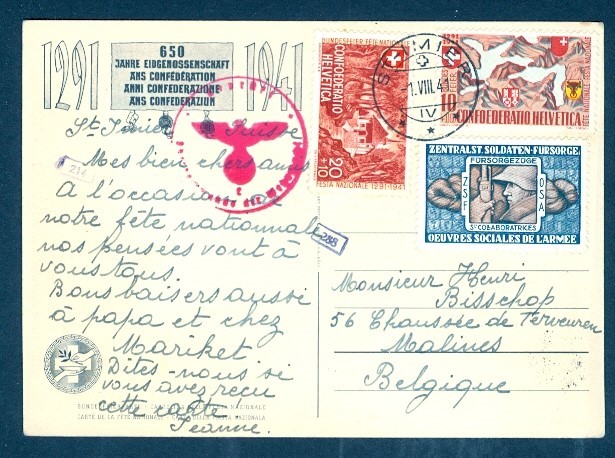 1291
650
JAHRE EIDGENOSSENSCHAFT
ANS CONFÉDÉRATION
ANNI CONFEDERAZIONE
ANS CONFEDERAZIUN
1941
St Imier Suisse
Mes bien chers amis
A l'occasion de
notre fête nationnale
nos pensées vont à
vous tous.
Bons baisers aussi
à papa et chez
Mariket
Dites-nous si
vous avez reçu
cette carte
Jeanne.
214
288
BUNDESFEIER FÊTE NATIONALE
CONFOEDERATIO
HELVETICA
20
+10
FESTA NAZIONALE 1291-1941
ST. IMIER
1.VIII.41
IV
10
CONFOEDERATIO HELVETICA
ZENTRALST. SOLDATEN-FÜRSORGE
FÜRSORGEZÜGE
ZSF
OSA
OEUVRES SOCIALES DE L'ARMÉE
Monsieur Henri
Bisschop
56 Chaussée de Tervueren
Malines
Belgique
CARTE DE LA FÊTE NATIONALE